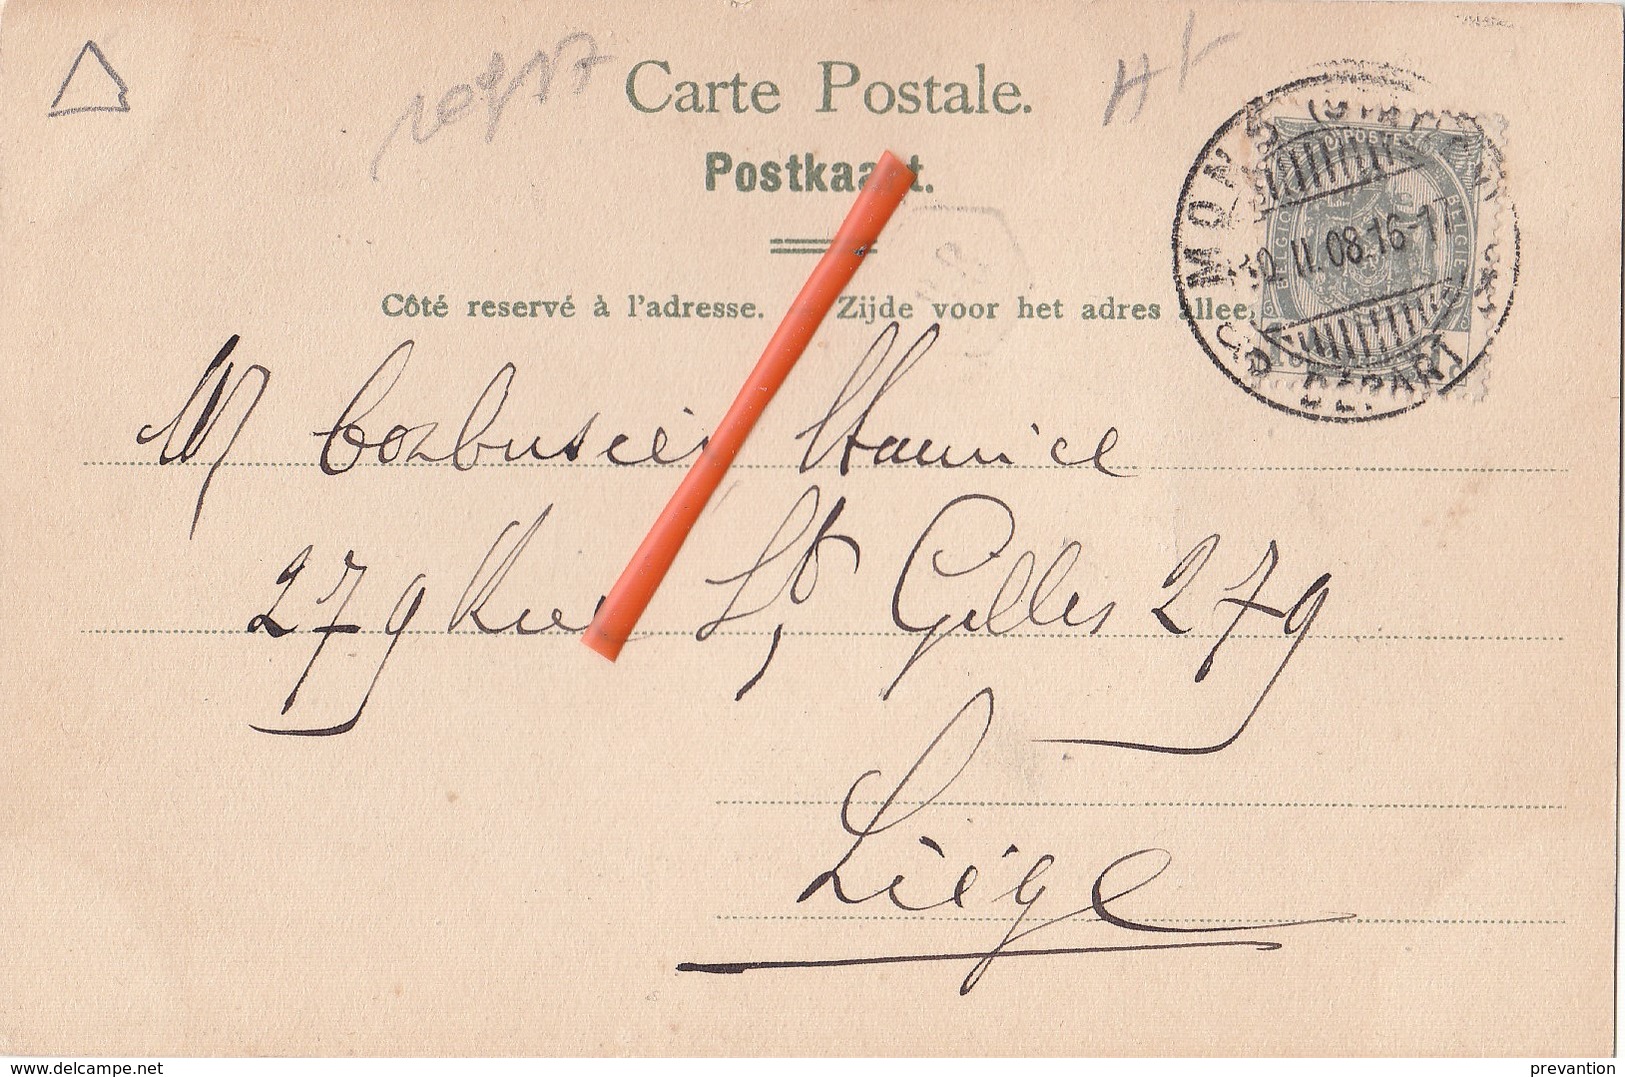 Carte Postale.
Postkaart.
Côté reservé à l'adresse. Zijde voor het adres allee
MONS (STATION)
II.08.16-17
DÉPART
M Corbusier Maurice
279 Rue St Gilles 279
Liège
www.delcampe.net
prevantion